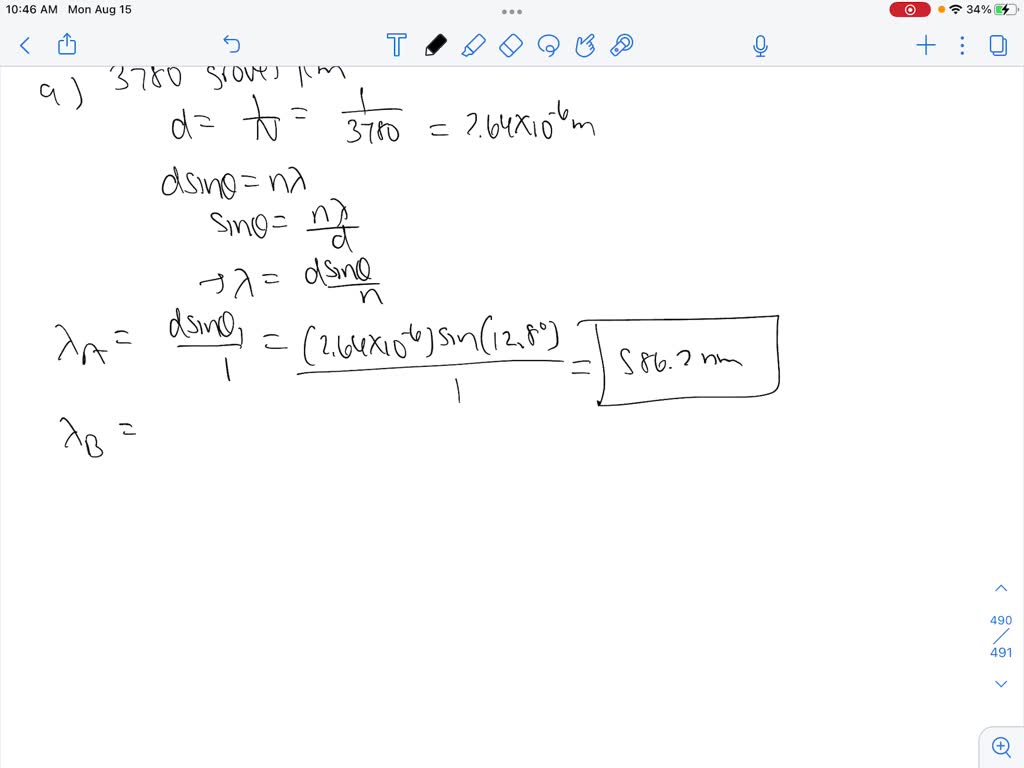 10:46 AM Mon Aug 15
34%
a) 3780
d = 1/N = 1/3780 = 2.64×10⁻⁶ m
dsinθ = nλ
sinθ = nλ/d
→ λ = dsinθ/n
λA = dsinθ₁/1 = (2.64×10⁻⁶) sin(12.8°)/1 = 586.2 nm
λB =
490
491